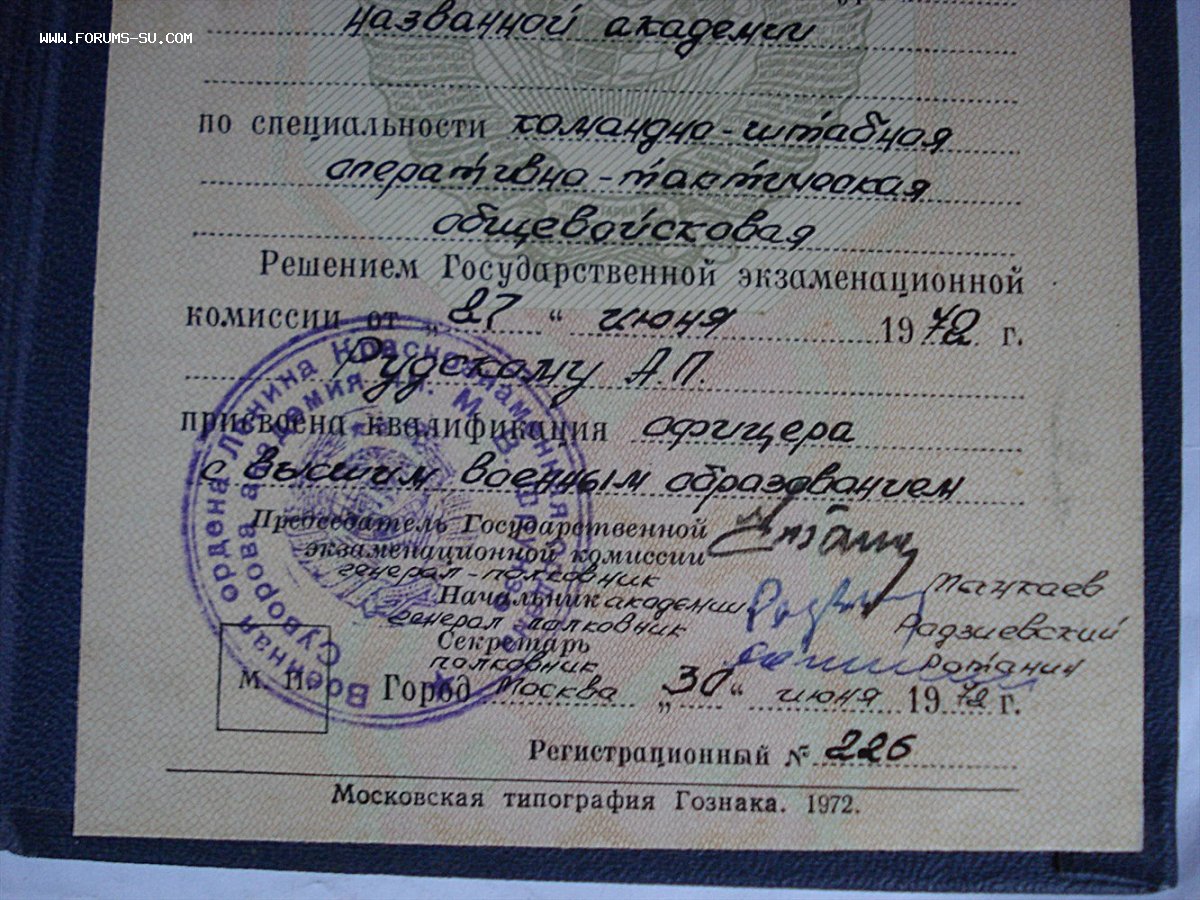 WWW.FORUMS-SU.COM
названной академии
по специальности командно-штабная
оперативно-тактическая
общевойсковая
Решением Государственной экзаменационной
комиссии от „27“ июня 1972 г.
Рудскому А.П.
присвоена квалификация офицера
с высшим военным образованием
Председатель Государственной
экзаменационной комиссии
генерал-полковник
Начальник академии
генерал полковник Радзиевский
Секретарь
полковник Потанин
М. П. Город Москва „30“ июня 1972 г.
Регистрационный № 226
Московская типография Гознака. 1972.
Военная ордена Ленина Краснознаменная ордена
Суворова академия им. М. В. Фрунзе